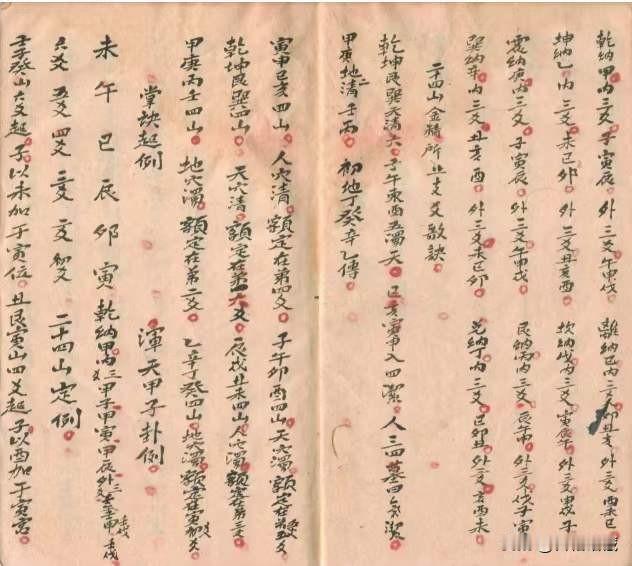 乾納甲內三爻子寅辰 外三爻午申戌 離納己內三爻卯丑亥 外三爻酉未巳
坤納乙內三爻未巳卯 外三爻丑亥酉 坎納戊內三爻寅辰午 外三爻申戌子
震納庚內三爻子寅辰 外三爻午申戌 艮納丙內三爻辰午申 外三爻戌子寅
巽納辛內三爻丑亥酉 外三爻未巳卯 兌納丁內三爻巳卯丑 外三爻亥酉未
二十四山金精所止支爻歌訣
乾坤艮巽天清六 子午卯酉五濁天 巳亥寅申人四潔 人三四墓四氣潔
甲庚地清二壬丙 初地丁癸辛乙傳
寅申巳亥四山 人穴清額定在第四爻 子午卯酉四山天穴濁額定在第五爻
乾坤艮巽四山 天穴清額定在第六爻 辰戌丑未四山人穴濁額定在第三爻
甲庚丙壬四山 地穴濁額定在第二爻 乙辛丁癸四山地穴濁額定在第初爻
掌訣起例 渾天甲子卦例
未午巳辰卯寅 乾納甲內三爻甲子甲寅甲辰外三爻壬申壬戌
六爻五爻四爻三爻二爻初爻 二十四山定例
壬子癸山六爻起子以未加于寅位 丑艮寅山四爻起子以酉加于寅宮